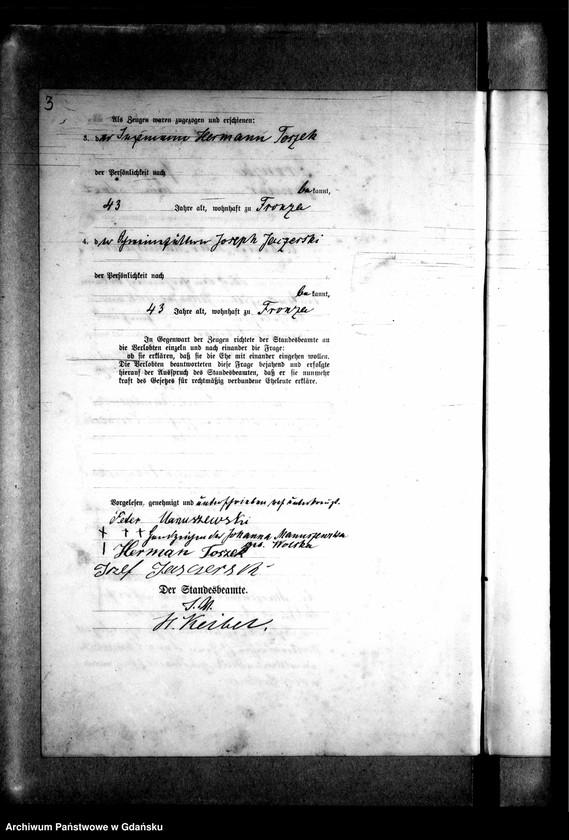 3
Als Zeugen waren zugezogen und erschienen:
3. der Hermann Toszek
der Persönlichkeit nach
be kannt,
43 Jahre alt, wohnhaft zu Fronza
4. der Joseph Jaszerski
der Persönlichkeit nach
be kannt,
43 Jahre alt, wohnhaft zu Fronza
In Gegenwart der Zeugen richtete der Standesbeamte an
die Verlobten einzeln und nach einander die Frage:
ob sie erklären, daß sie die Ehe mit einander eingehen wollen.
Die Verlobten beantworteten diese Frage bejahend und erfolgte
hierauf der Ausspruch des Standesbeamten, daß er sie nunmehr
kraft des Gesetzes für rechtmäßig verbundene Eheleute erkläre.
Vorgelesen, genehmigt und unterschrieben resp unterkreuzt.
Peter Manuszewski
+ + + Handzeichen der Johanna Manuszewska
geb. Wolska
Herman Toszek
Jozef
Der Standesbeamte.
I. V.
H. Keiber.
Archiwum Państwowe w Gdańsku